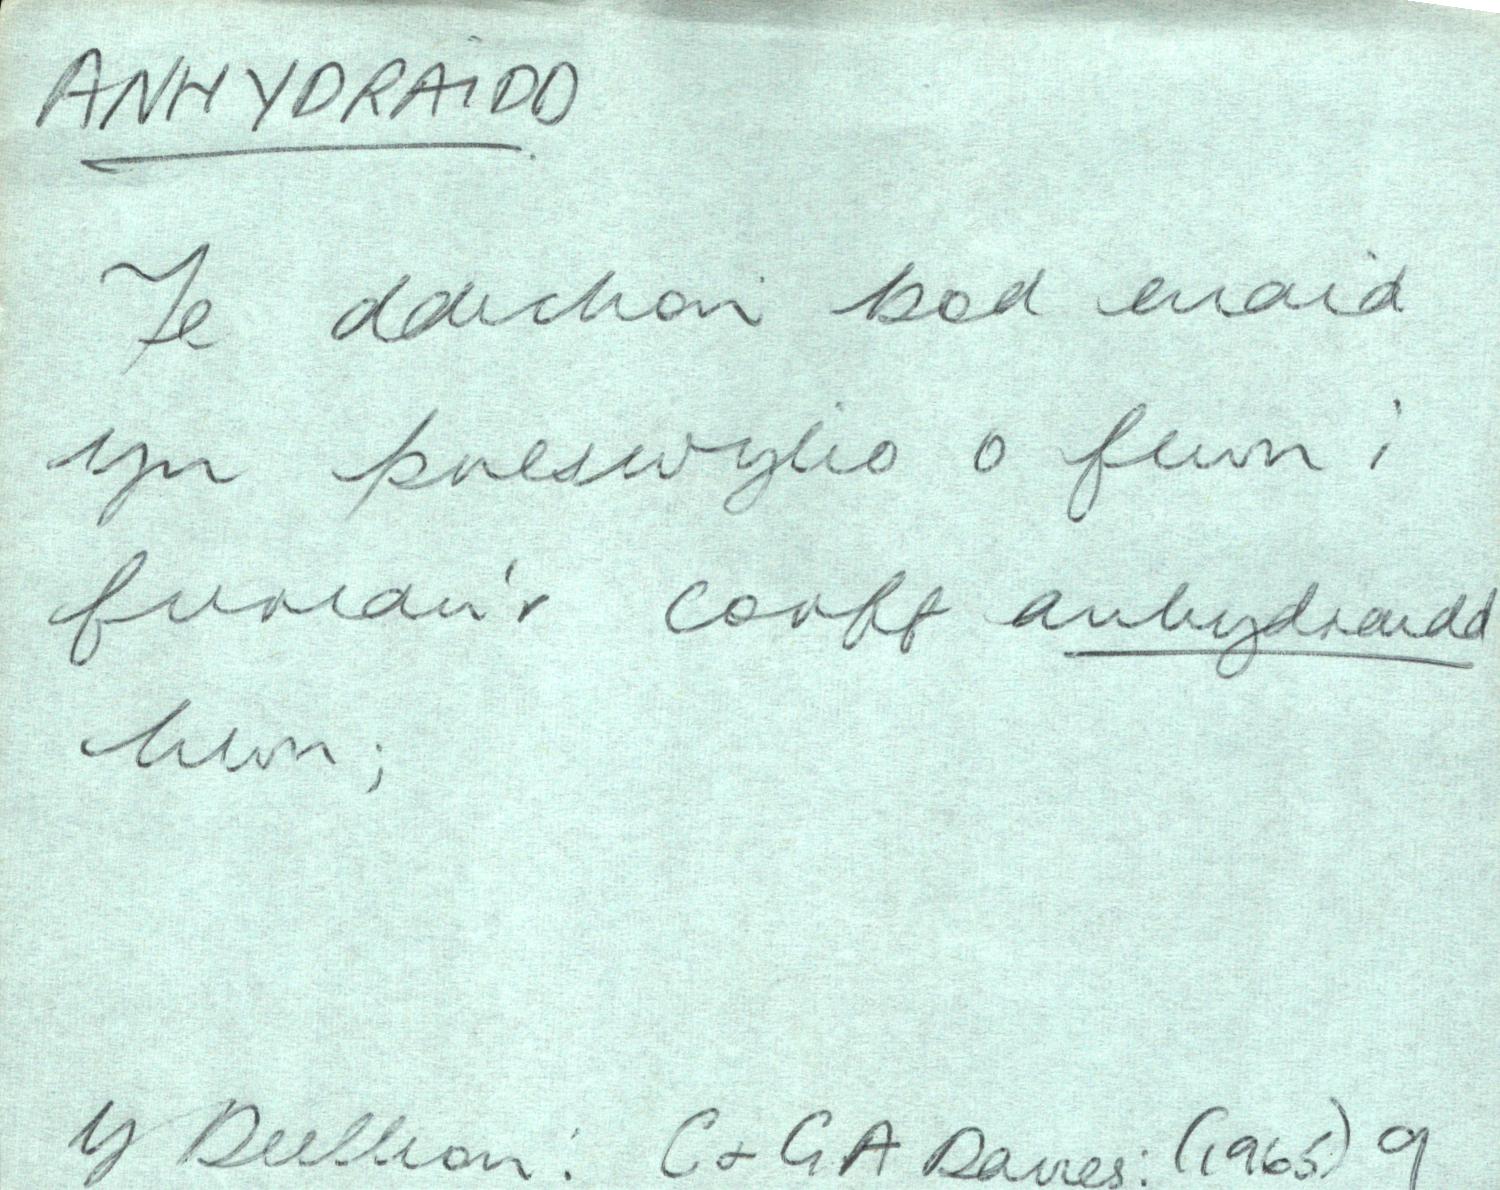 ANHYDRAIDD
Fe ddichon bod enaid
yn preswylio o fewn i
furiau'r corff anhydraidd
hwn;
Y Deillion: C & GA Davies: (1965) 9